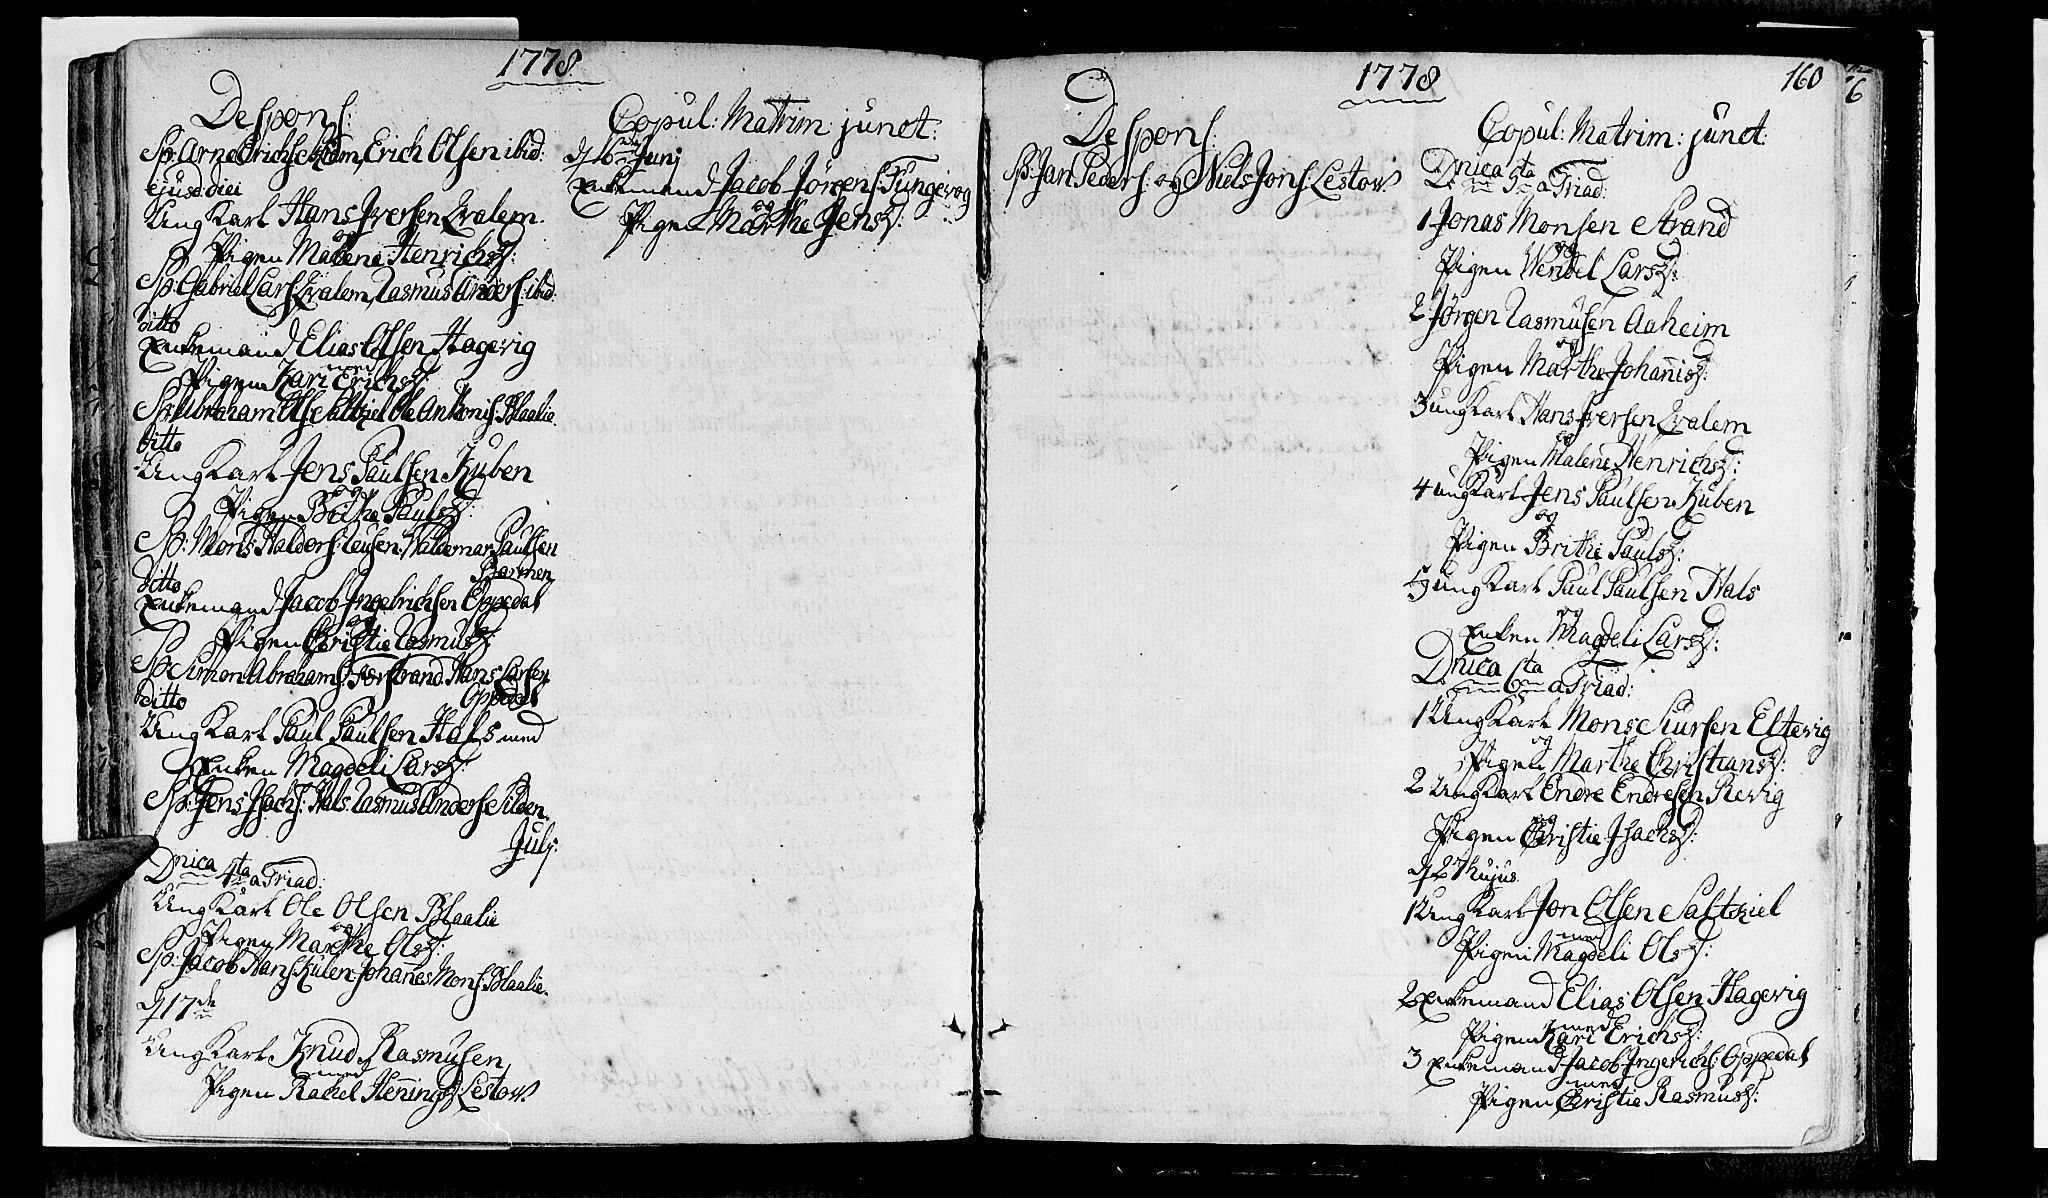 1778.
Despons:
Sp: Arne Erichs: Erich Olsen ibid:
ejusd: diei
Ung Karl Hans Iversen Qvalem.
og
Pigen Malene Henrichsd:
Sp: Gabriel Lars: Qvalem, Rasmus Anders: ibid:
ditto
Enkemand Elias Olsen Hagevig
med
Pigen Kari Erichsd:
Sp: Abraham Olse Saltkiel Ole Antonis: Blaalie
ditto
Ung Karl Jens Paulsen Kuben
og
Pigen Brithe Paulsd:
Sp: Mons Haldors: Leusen: Waldemar Paulsen
Barmen
ditto
Enkemand Jacob Ingebrichsen Oppedal
og
Pigen Christie Rasmusd:
Sp: Simon Abrahams: Førstrand Hans Larsen
Oppedal
ditto
Ung Karl Paul Paulsen Hals med
Enken Magdeli Larsd:
Sp: Jens Isachs: Hals Rasmus Anderse Silden.
July:
Dnica 4ta a Triad:
Ung Karl Ole Olsen Blaalie
og
Pigen Marthe Olsd:
Sp: Jacob Hans: Kulen Johanes Mons: Blaalie.
d 17de
Ung Karl Knud Rasmusen
med
Pigen Rakel Henings: Lestow.
Copul: Matrim: junct:
d 16de Junj
Enkemand Jacob Jørgens: Tungevog
og
Pigen Marthe Jensd:
1778
160
Despons:
Sp: Jan Peders: og Niels Jons: Lestow
Copul: Matrim: junct:
Dnica 5ta a Triad:
1 Jonas Monsen Strand
og
Pigen Wendel Larsd:
2 Jørgen Rasmusen Aaheim
og
Pigen Marthe Johanisd:
3 ung Karl Hans Iversen Qvalem
og
Pigen Malene Henrichsd:
4 ung Karl Jens Paulsen Kuben
og
Pigen Brithe Paulsd:
5 ung Karl Paul Paulsen Hals
og
Enken Magdeli Larsd:
Dnica 6ta a Triad:
1 Ung Karl Mons Siursen Eltevig
og
Pigen Marthe Christiansd:
2 Ung Karl Endre Endresen Revig
og
Pigen Christie Isachsd:
d 27 hujus
1 Ung Karl Jon Olsen Saltkiel
med
Pigen Magdeli Olsd:
2 Enkemand Elias Olsen Hagevig
med
Pigen Kari Erichsd:
3 Enkemand Jacob Ingerichs: Oppedal
med
Pigen Christie Rasmusd: